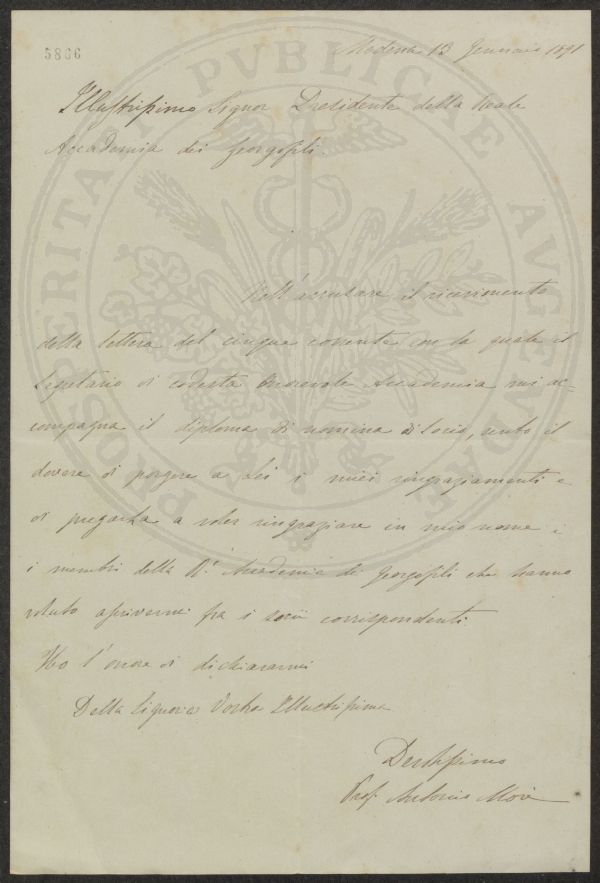 5866
Modena 13 Gennaio 1891
Illustrissimo Signor Presidente della Reale
Accademia dei Georgofili.
Nell'accusare il ricevimento
della lettera del cinque corrente con la quale il
Segretario di codesta Onorevole Accademia mi ac-
compagna il diploma di nomina di Socio, sento il
dovere di porgere a Lei i miei ringraziamenti e
di pregarla a voler ringraziare in mio nome
i membri della R.ª Accademia dei Georgofili che hanno
voluto ascrivermi fra i socii corrispondenti.
Ho l'onore di dichiararmi
Della Signoria Vostra Illustrissima
Devotissimo
Prof. Antonio
PROSPERITATI PVBLICAE AVGENDAE